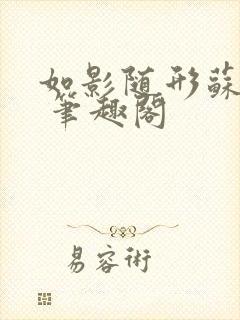 如影随形蘇
笔趣閣
易容術